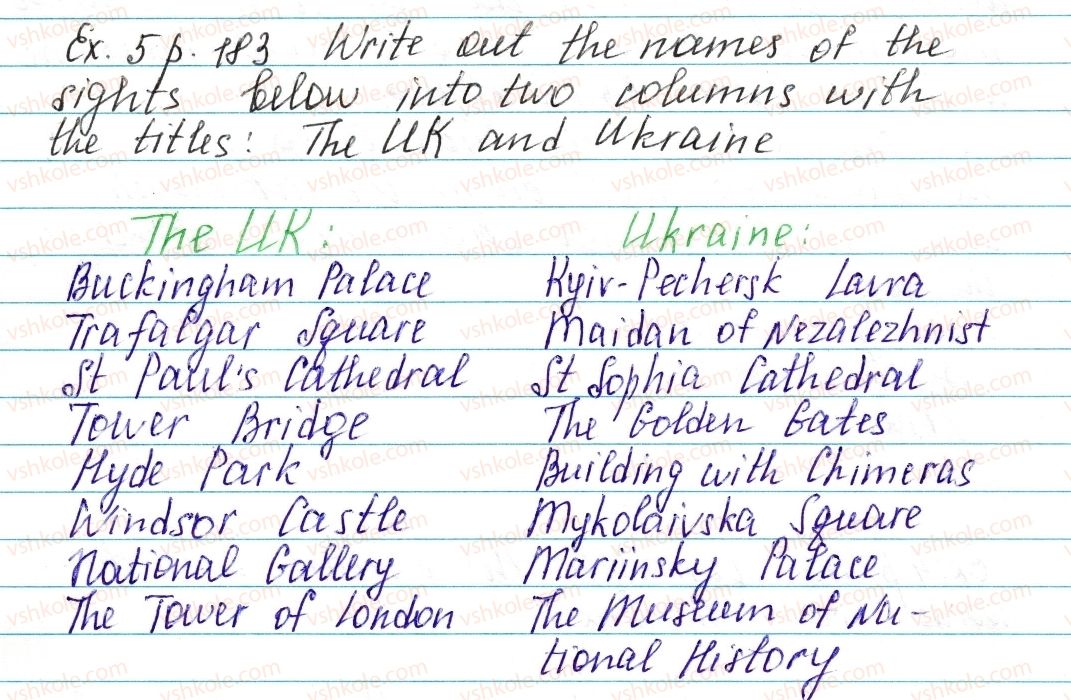 Ex. 5 p. 183 Write out the names of the
sights below into two columns with
the titles: The UK and Ukraine
The UK:
Buckingham Palace
Trafalgar Square
St Paul's Cathedral
Tower Bridge
Hyde Park
Windsor Castle
National Gallery
The Tower of London
Ukraine:
Kyiv-Pechersk Lavra
Maidan of Nezalezhnist
St Sophia Cathedral
The Golden Gates
Building with Chimeras
Mykolaivska Square
Mariinsky Palace
The Museum of Na-
tional History